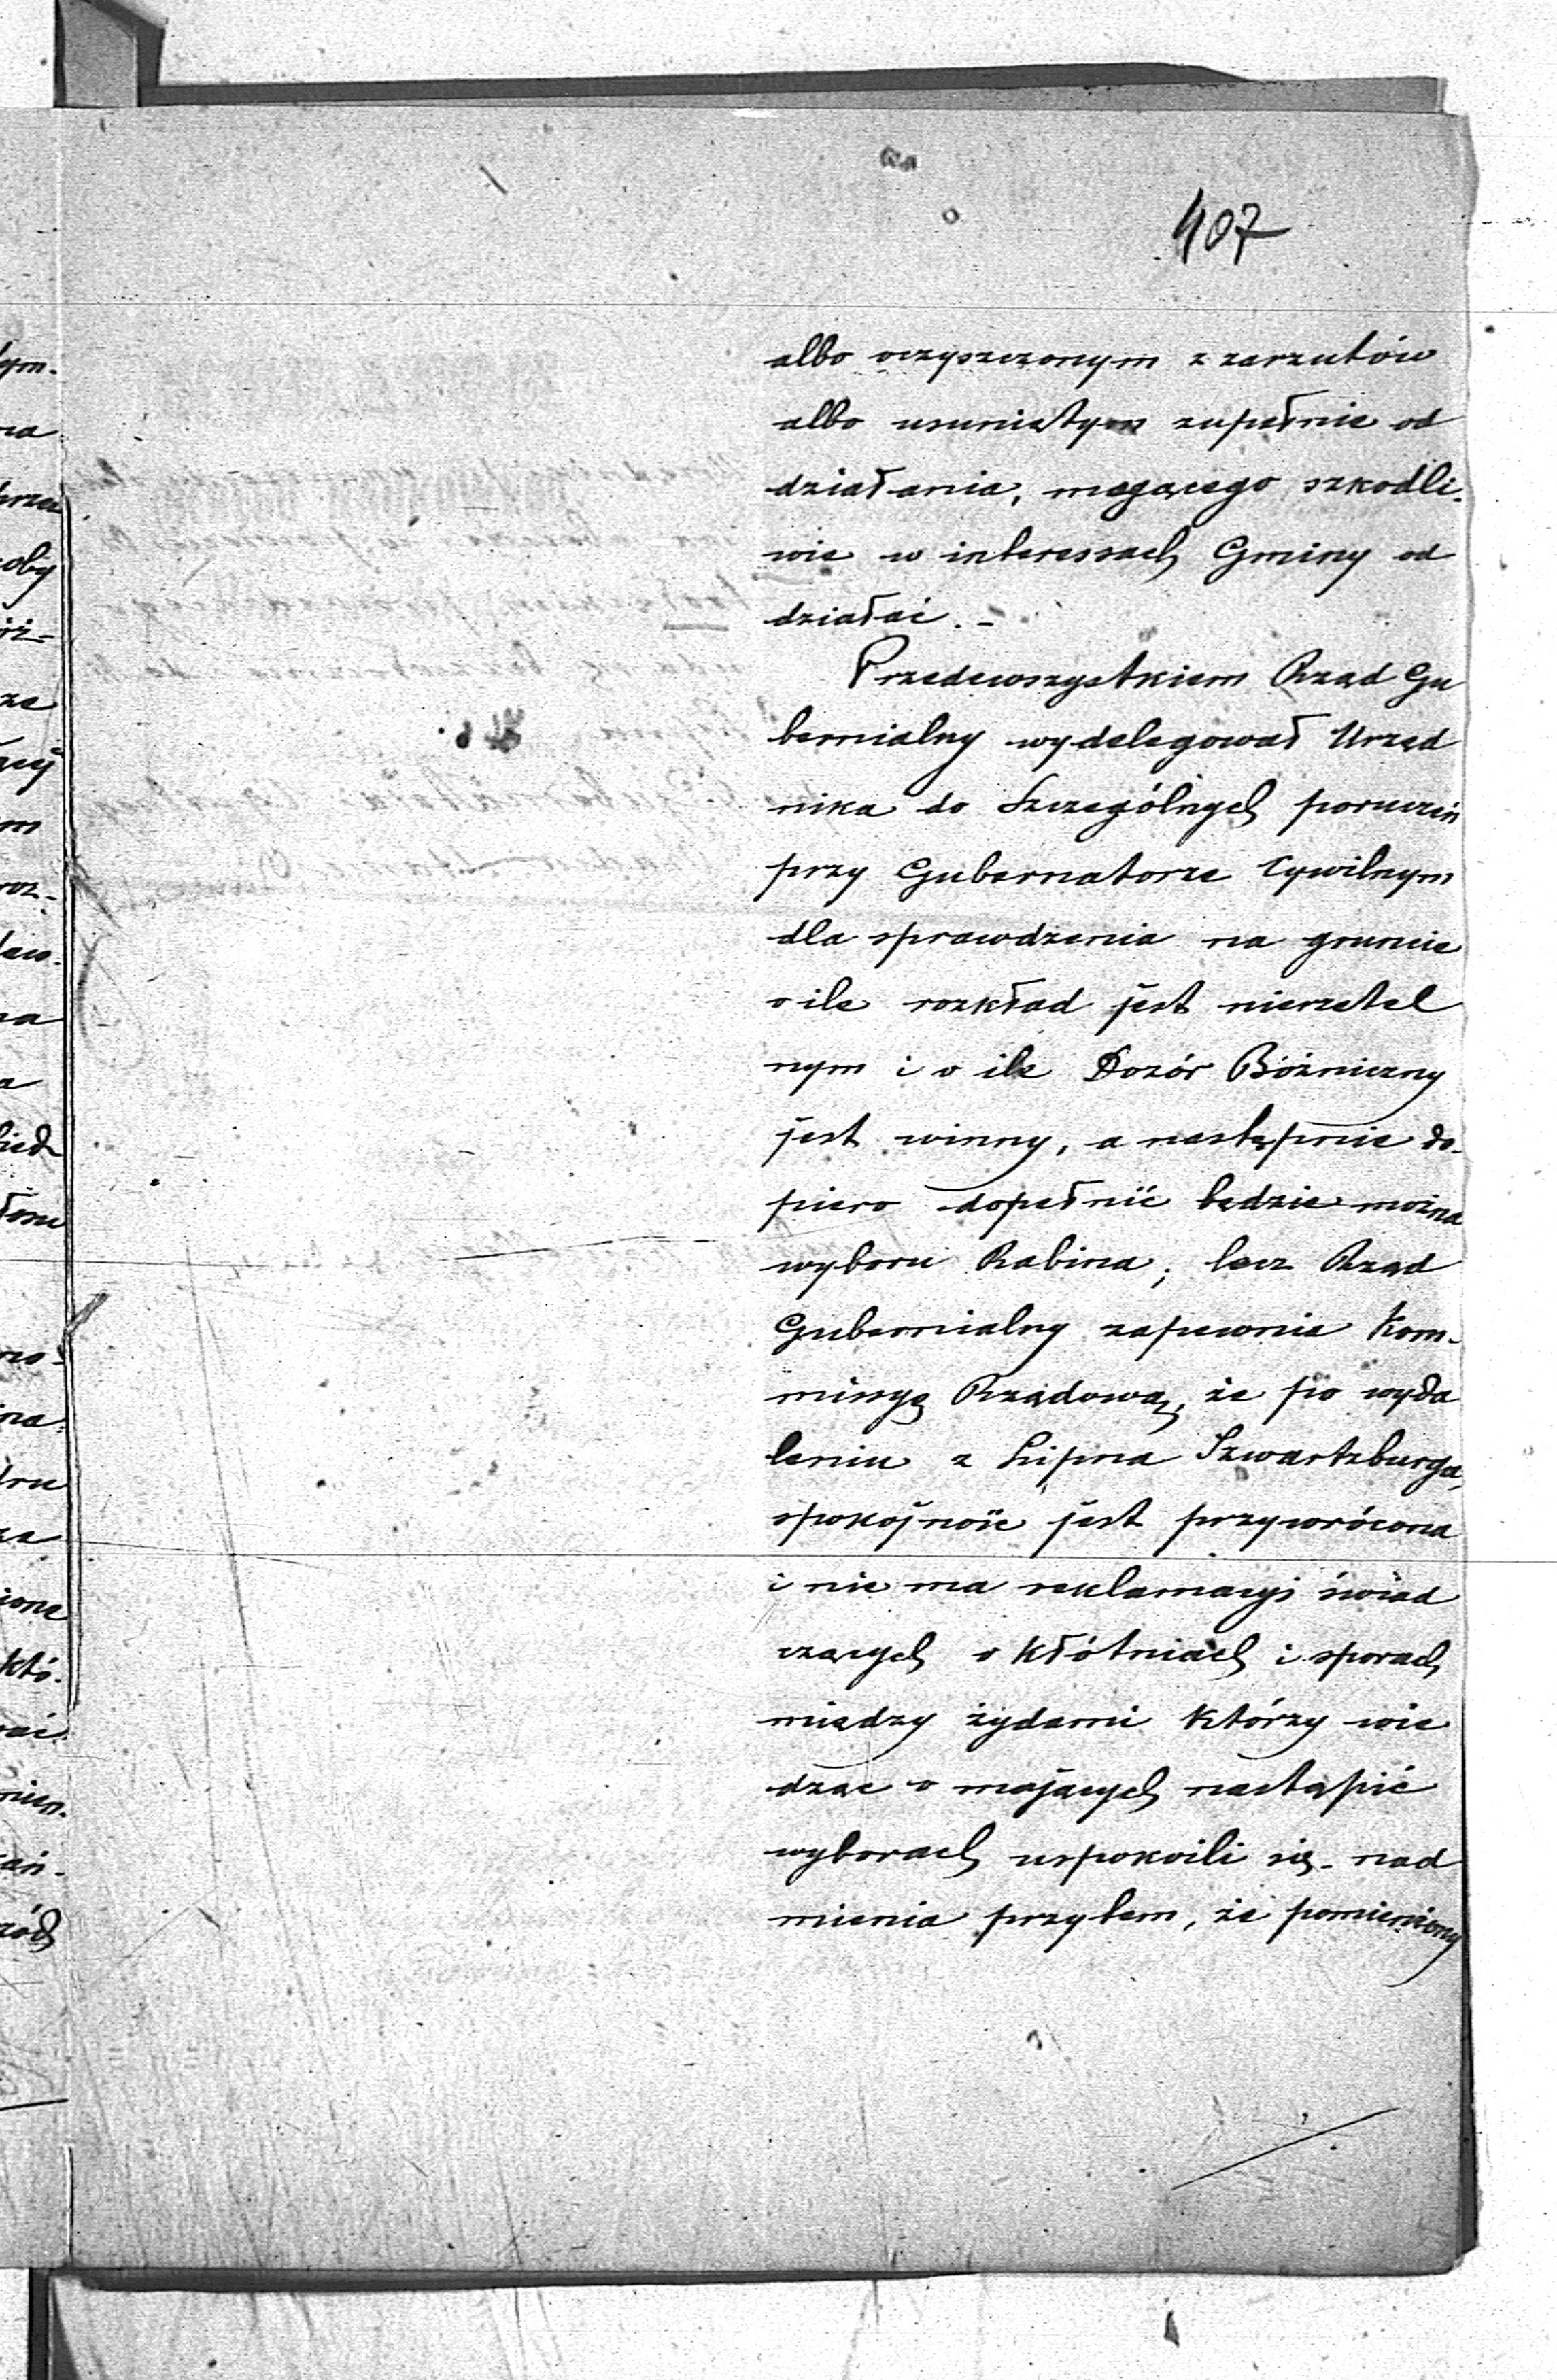 407
albo oczyszczonym z zarzutów
albo usuniętym zupełnie od
działania, mogącego szkodli-
wie w interessach Gminy od
działać. -
Przedewszystkiem Rząd Gu
bernialny wydelegował Urzęd
nika do Szczególnych poruczeń
przy Gubernatorze Cywilnym
dla sprawdzenia na gruncie
o ile rozkład jest nierzetel
nym i o ile Dozór Bóżniczny
jest winny, a następnie do-
piero dopełnić będzie można
wyboru Rabina; lecz Rząd
Gubernialny zapewnia Kom-
missyę Rządową, że po wyda
leniu z Lipna Szwartzburga,
spokojność jest przywrócona
i nie ma reklamacyi świad
czących o kłótniach i sporach
między żydami którzy wie
dząc o mających nastąpić
wyborach uspokoili się - nad
mienia przytem, że pomieniony